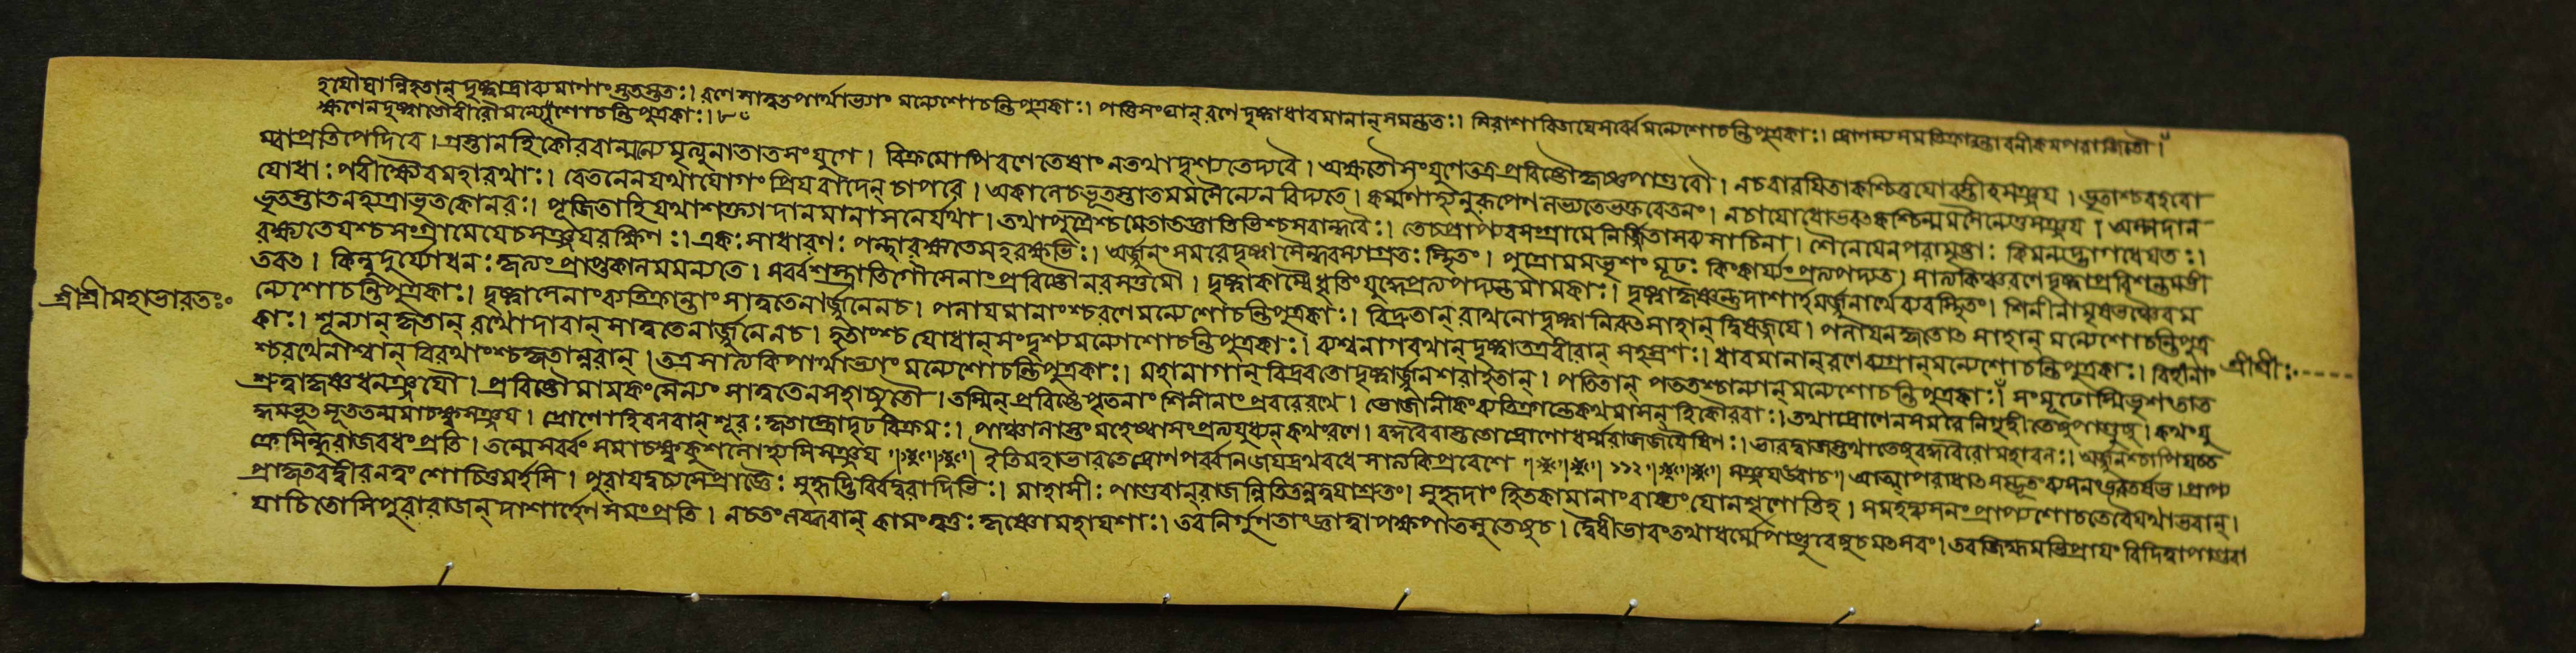 হযৌঘান্নিহতান্ দৃষ্ট্বা দ্রাব্যমাণাংস্ততস্ততঃ। রণে সাত্বতপার্থাভ্যাং মন্যে শোচন্তি পুত্রকাঃ। পত্তিসংঘান্ রণে দৃষ্ট্বা ধাবমানান্ সমন্ততঃ। নিরাশা বিজযে সর্ব্বে মন্যে শোচন্তি পুত্রকাঃ। দ্রোণস্য সমতিক্রান্তাবনীকমপরাজিতৌ।
ক্ষণেন দৃষ্ট্বা তৌ বীরৌ মন্যে শোচন্তি পুত্রকাঃ।
প্রতিপেদিরে। গ্রস্তান হি কৌরবান্মন্যে মৃত্যুনা তাত সংযুগে। বিক্রমোপি রণে তেষাং ন তথা দৃশ্যতে দ্য বৈ। অক্ষতৌ সংযুগে তত্র প্রবিষ্টৌ কৃষ্ণপাণ্ডবৌ। ন চ বারযিতা কশ্চিত্তযোরস্তীহ সঞ্জয। ভৃতাশ্চ বহবো
যোধাঃ পরীক্ষ্যৈব মহারথাঃ। বেতনেন যথাযোগং প্রিযবাদেন চাপরে। অকারণভৃতস্তাত মম সৈন্যে ন বিদ্যতে। কর্ম্মণা হ্যনুরূপেণ লভ্যতে ভক্তবেতনং। ন চ যোধোভবৎ কশ্চিন্মম সৈন্যে তু সঞ্জয। অল্পদান
ভৃতস্তাত ন হ্যত্রাভৃতকো নরঃ। পূজিতা হি যথাশক্ত্যা দানমানাসনৈর্যথা। তথা পুত্রৈশ্চ মে তাত জ্ঞাতিভিশ্চ সবান্ধবৈঃ। তে চ প্রাপ্যৈব সংগ্রামে নির্জ্জিতা সব্যসাচিনা। শৈনেযেন পরামৃষ্টাঃ কিমন্যদ্ভাগধেযতঃ।
রক্ষ্যতে যশ্চ সংগ্রামে যে চ সঞ্জয রক্ষিণঃ। একঃ সাধারণঃ পন্থা রক্ষতে সহ রক্ষিভিঃ। অর্জ্জুনং সমরে দৃষ্ট্বা সৈন্ধবস্যাগ্রতঃ স্থিতং। পুত্রো মম ভৃশং মূঢঃ কিং কার্য্যং প্রত্যপদ্যত। সাত্যকিঞ্চ রণে দৃষ্ট্বা প্রবিশন্তমভী
তবৎ। কিন্নু দুর্যোধনঃ কৃত্যং প্রাপ্তকালমমন্যত। সর্ব্বশস্ত্রাতিগৌ সেনাং প্রবিষ্টৌ নরসত্তমৌ। দৃষ্ট্বা কাম্বৈ ধৃতিং যুদ্ধে প্রত্যপদ্যন্ত মামকাঃ। দৃষ্ট্বা কৃষ্ণন্তু দাশার্হমর্জ্জুনার্থে ব্যবস্থিতং। শিনীনামৃষভঞ্চৈব ম
ন্যে শোচন্তি পুত্রকাঃ। দৃষ্ট্বা সেনাং ব্যতিক্রান্তাং সাত্বতেনার্জ্জুনেন চ। পলাযমানাংশ্চ রণে মন্যে শোচন্তি পুত্রকাঃ। বিদ্রুতান্ রথিনো দৃষ্ট্বা নিরুৎসাহান্ দ্বিষজ্জযে। পলাযনকৃতোৎসাহান্ মন্যে শোচন্তি পুত্র
কাঃ। শূন্যান্ কৃতান্ রথোদারান্ সাত্বতেনার্জ্জুনেন চ। হতাংশ্চ যোধান্ সংদৃশ্য মন্যে শোচন্তি পুত্রকাঃ। ব্যশ্বনাগরথান্ দৃষ্ট্বা তত্র বীরান্ সহস্রশঃ। ধাবমানান্ রণে ব্যগ্রান্ মন্যে শোচন্তি পুত্রকাঃ। বিহীনাং
শ্চ রথেনাশ্বান্ বিরথাংশ্চ কৃতান্নরান্। তত্র সাত্যকিপার্থাভ্যাং মন্যে শোচন্তি পুত্রকাঃ। মহানাগান্ বিদ্রবতো দৃষ্ট্বার্জ্জুনশরাহতান্। পতিতান্ পততশ্চান্যান্ মন্যে শোচন্তি পুত্রকাঃ। সংমূঢোস্মি ভৃশং তাত
শ্রুত্বা কৃষ্ণধনঞ্জযৌ। প্রবিষ্টৌ মামকং সৈন্যং সাত্বতেন সহাচ্যুতৌ। তস্মিন্ প্রবিষ্টে পৃতনাং শিনীনাং প্রবরে রথে। ভোজানীকং ব্যতিক্রান্তে কথমাসন্ হি কৌরবাঃ। তথা দ্রোণেন সমরে নিগৃহীতেষু পাণ্ডুষু। কথং যু
দ্ধমভূত্তত্র তন্মমাচক্ষ্ব সঞ্জয। দ্রোণো হি বলবান্ শূরঃ কৃতাস্ত্রো দৃঢবিক্রমঃ। পাঞ্চালাস্তং মহেষ্বাসং প্রত্যযুধ্যন্ কথং রণে। বদ্ধবৈরাস্ততো দ্রোণে ধর্ম্মরাজজযৈষিণঃ। ভারদ্বাজস্তথা তেষু বদ্ধবৈরো মহাবলঃ। অর্জ্জুনশ্চাপি যচ্চ
ক্রে সিন্ধুরাজবধং প্রতি। তন্মে সর্ব্বং সমাচক্ষ্ব কুশলো হ্যসি সঞ্জয॥ ইতি মহাভারতে দ্রোণপর্ব্বনি জযদ্রথবধে সাত্যকিপ্রবেশে॥ ১১২॥ সঞ্জয উবাচ॥ আত্মাপরাধাৎ সম্ভূতং ব্যসনং ভরতর্ষভ। প্রাপ্য
প্রাকৃতবদ্বীর ন ত্বং শোচিতুমর্হসি। পুরা যদুচ্যসে প্রাজ্ঞৈঃ সুহৃদ্ভির্বিদুরাদিভিঃ। মাহার্ষীঃ পাণ্ডবান্ রাজন্নিতি তন্ন ত্বযা শ্রুতং। সুহৃদাং হিতকামানাং বাক্যং যো ন শৃণোতি হ। স মহদ্ব্যসনং প্রাপ্য শোচতে বৈ যথা ভবান্।
যাচিতোসি পুরা রাজন্ দাশার্হেণ সমং প্রতি। ন চ তং লব্ধবান্ কামং ত্বত্তঃ কৃষ্ণো মহাযশাঃ। তব নির্গুণতাং জ্ঞাত্বা পক্ষপাতং সুতেষু চ। দ্বৈধীভাবং তথা ধর্ম্মে পাণ্ডবেষু চ মৎসরং। তব জিহ্মমভিপ্রাযং বিদিত্বা পাণ্ডবা
শ্রীশ্রীমহাভারতঃ
শ্রীশ্রীঃ